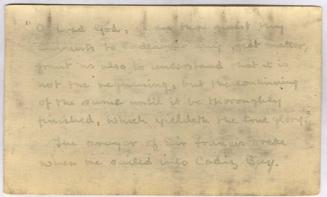 O Lord God, when thou givest thy
servants to endeavour any great matter,
grant us also to understand that it is
not the beginning, but the continuing
of the same until it be thoroughly
finished, which yieldeth the true glory.
The prayer of Sir Francis Drake
when he sailed into Cadiz Bay.